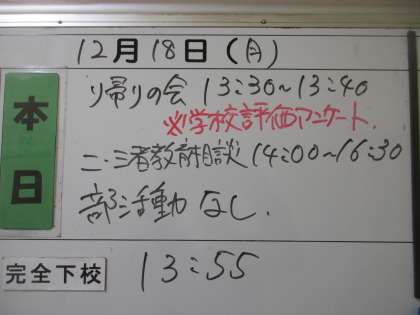 12月18日(月)
本日
り帰りの会 13:30~13:40
※学校評価アンケート.
二・三者教育相談 14:00~16:30
部活動 なし.
完全下校 13:55